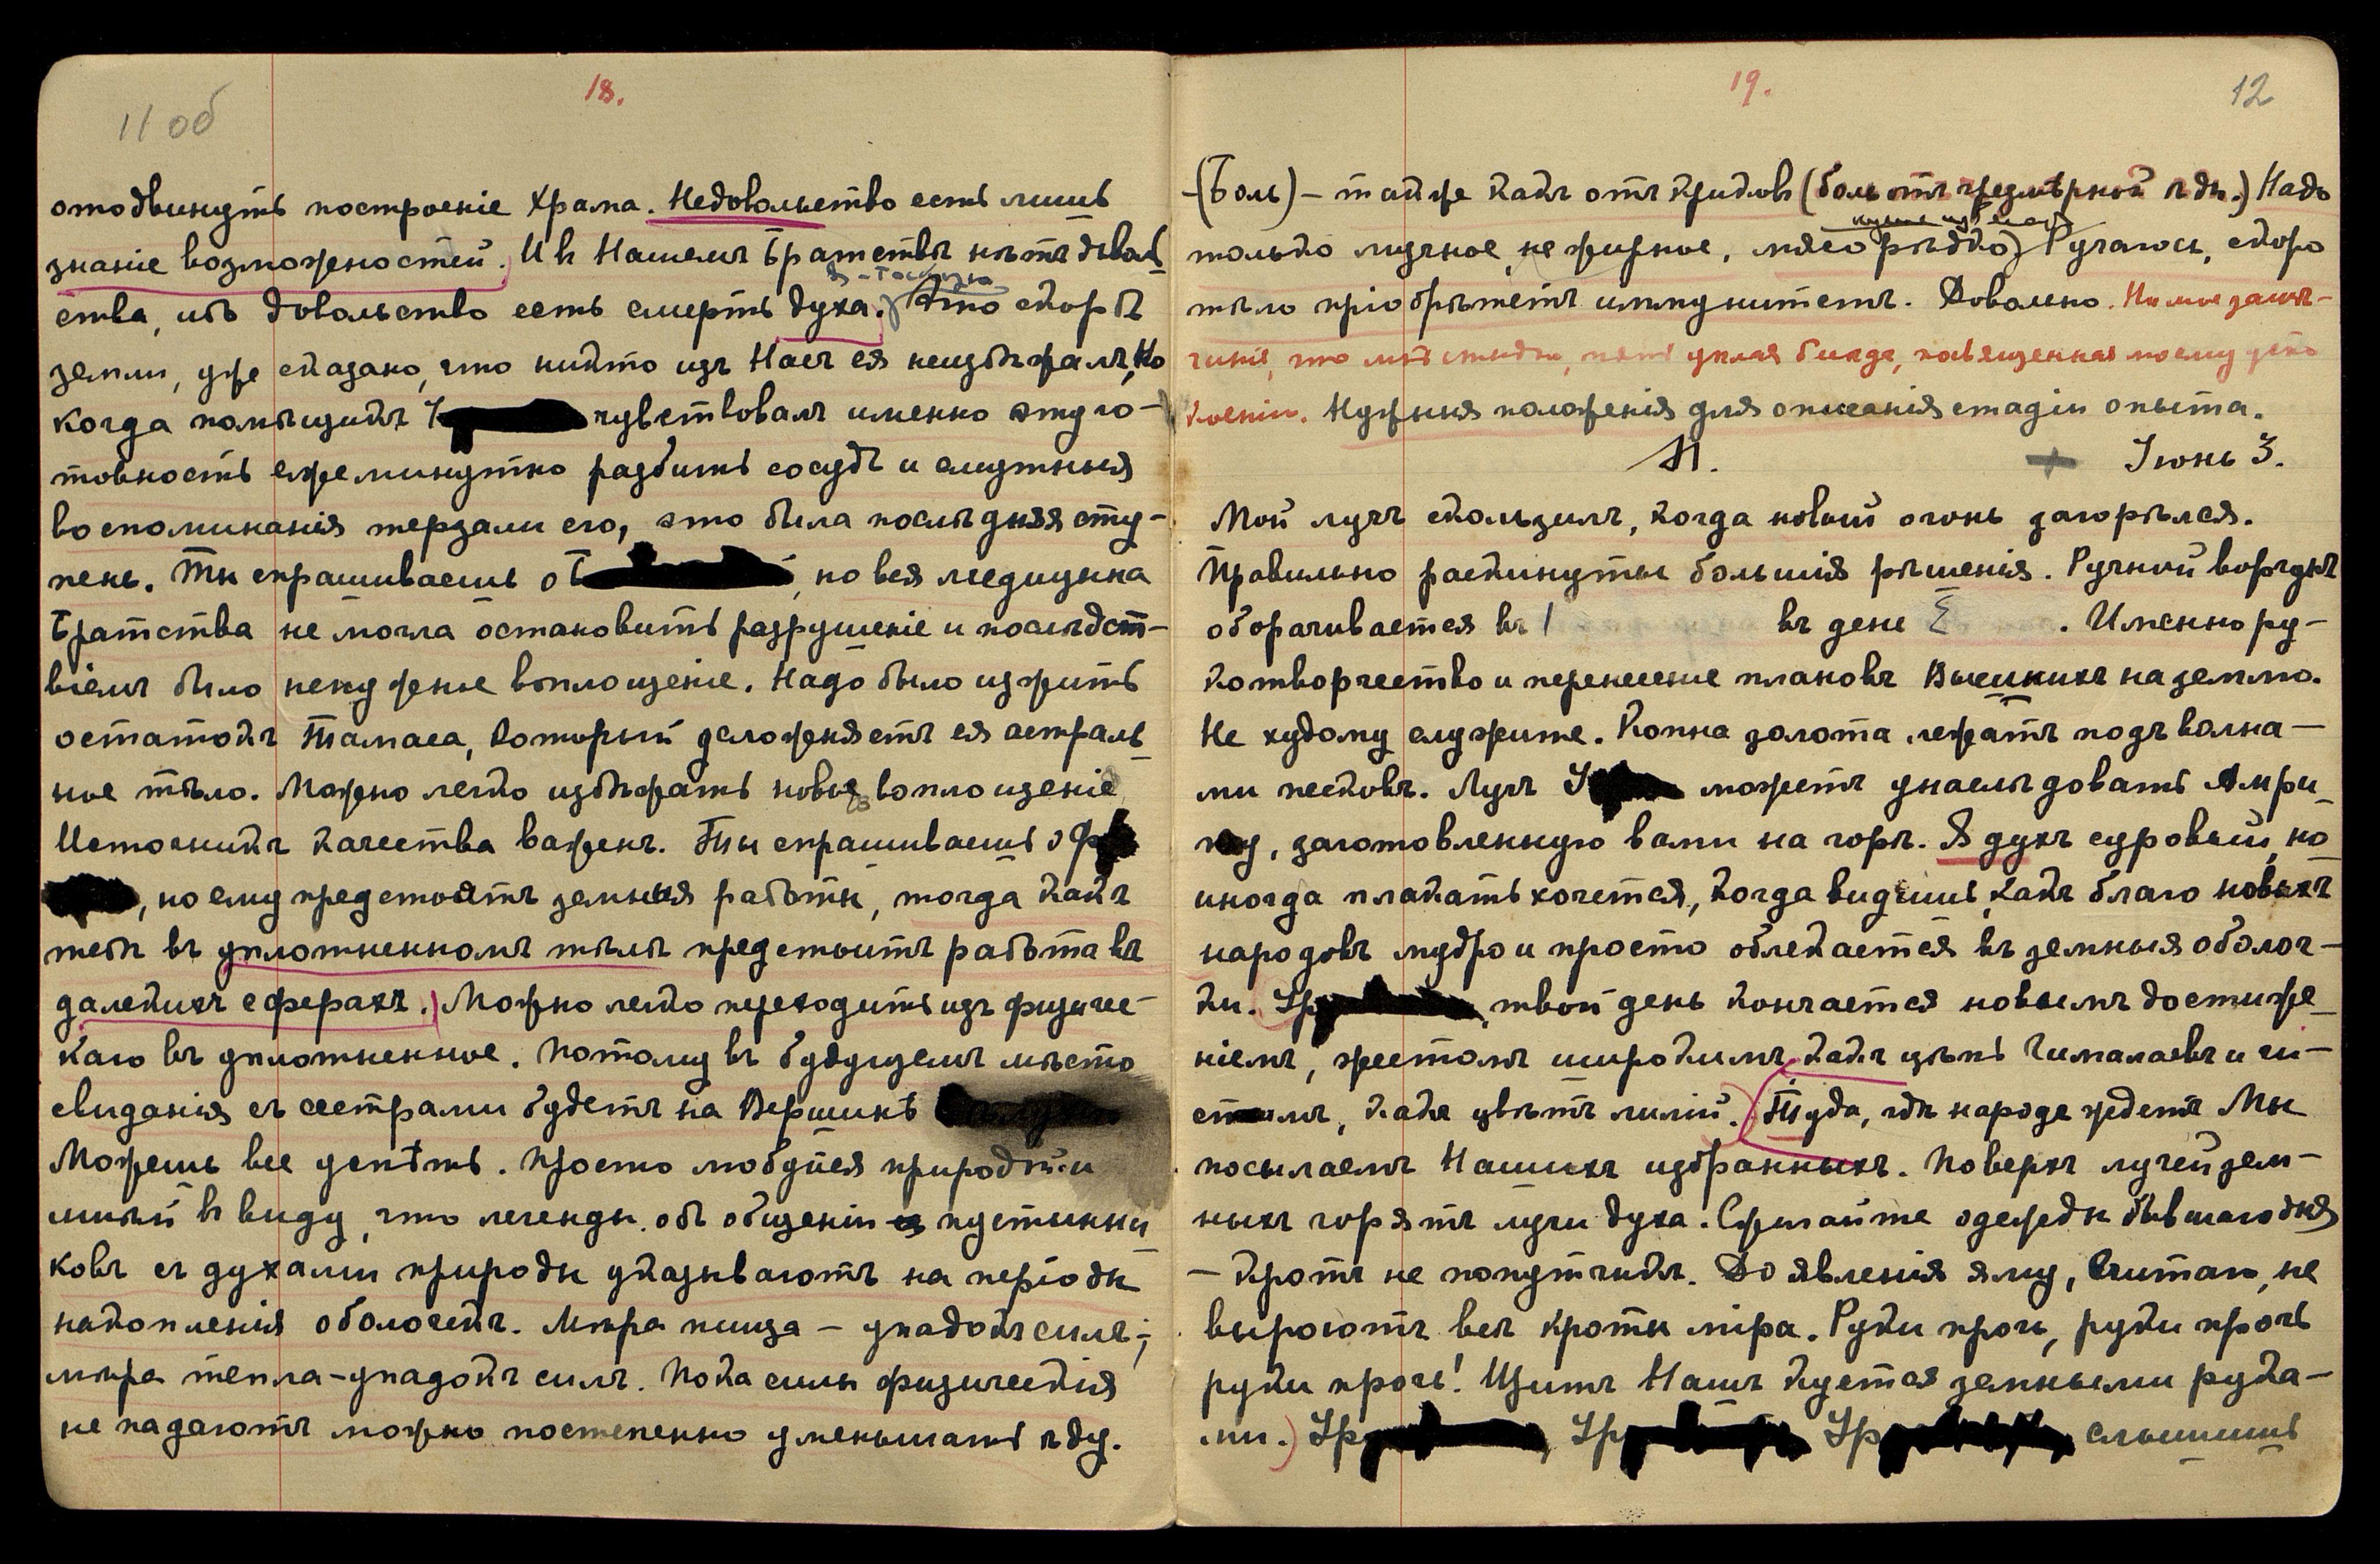 11 об
18.
отодвинуть построеніе Храма. Недовольство есть лишь
знаніе возможностей. И въ Нашемъ Братствѣ нѣтъ доволь-
ства, ибо довольство есть смерть духа.) Это скорбь
земли, уже сказано, что никто изъ Насъ ея неизбѣжалъ. Но
когда помѣщикъ чувствовалъ именно эту го-
товность ежеминутно разбить сосудъ и смутныя
воспоминанія терзали его, это была послѣдняя сту-
пень. Ты спрашиваешь о Б , но вся медицина
Братства не могла остановить разрушеніе и послѣдст-
віемъ было ненужное воплощеніе. Надо было изжить
остатокъ Тамаса, который усложняетъ ея астраль-
ное тѣло. Можно легко избѣжать новыя воплощеніе
Источникъ качества важенъ. Ты спрашиваешь о Ф
, но ему предстоятъ земныя работы, тогда какъ
тебѣ въ уплотненномъ тѣлѣ предстоитъ работа въ
далекихъ сферахъ.) Можно легко переходить изъ физичес-
каго въ уплотненное. Потому въ будущемъ мѣсто
свиданія съ сестрами будетъ на Вершинѣ
Можешь все успѣть. Просто любуйся природой и
имѣй въ виду, что легенды объ общеніи пустынни-
ковъ съ духами природы указываютъ на періоды
накопленія оболочекъ. Мѣра пища – упадокъ силъ;
мѣра тепла – упадокъ силъ. Пока силы физическія
не падаютъ можно постепенно уменьшать ѣду.
19.
12
–(Боль) – также какъ отъ (боль отъ чрезмѣрной ѣды.) Надо
только мучное, не жирное, мясо рѣдко) Ручаюсь, скоро
тѣло пріобрѣтетъ иммунитетъ. Довольно. На мое замѣ-
чаніе, что мнѣ стыдно, цѣлая бесѣда, посвященная моему
Нужныя положенія для описанія стадіи опыта.
Іюнь 3.
Мой лучъ скользилъ, когда новый огонь загорѣлся.
Правильно раскинуты большія рѣшенія. Ручной
оборачивается въ въ день . Именно ру-
котворчество и перенесение плановъ Высшихъ на землю.
Не худому служите. Копна золота лежатъ подъ волна-
ми песковъ. Лучъ У можетъ унаслѣдовать Амри-
ту, заготовленную вами на горѣ. Я духъ суровый, но
иногда плакать хочется, когда видишь, какъ благо новыхъ
народовъ мудро и просто облекается въ земныя оболоч-
ки. Ур твой день кончается новымъ достиже-
ніемъ, жестомъ широкимъ, какъ цѣпь Гималаевъ и чи-
стымъ, какъ цвѣтъ лилій. (Туда, гдѣ народъ ждетъ Мы
посылаемъ Нашихъ избранныхъ. Поверхъ лучей зем-
ныхъ горятъ лучи духа. Сжигайте одежды бывшаго дня
– кротъ не попутчикъ. До явленія яму, Считаю, не
выроютъ всѣ кроты міра. Руки прочь, руки прочь
руки прочь! Щитъ Нашъ куется земными рука-
ми.) Ур , Ур Ур слышишь